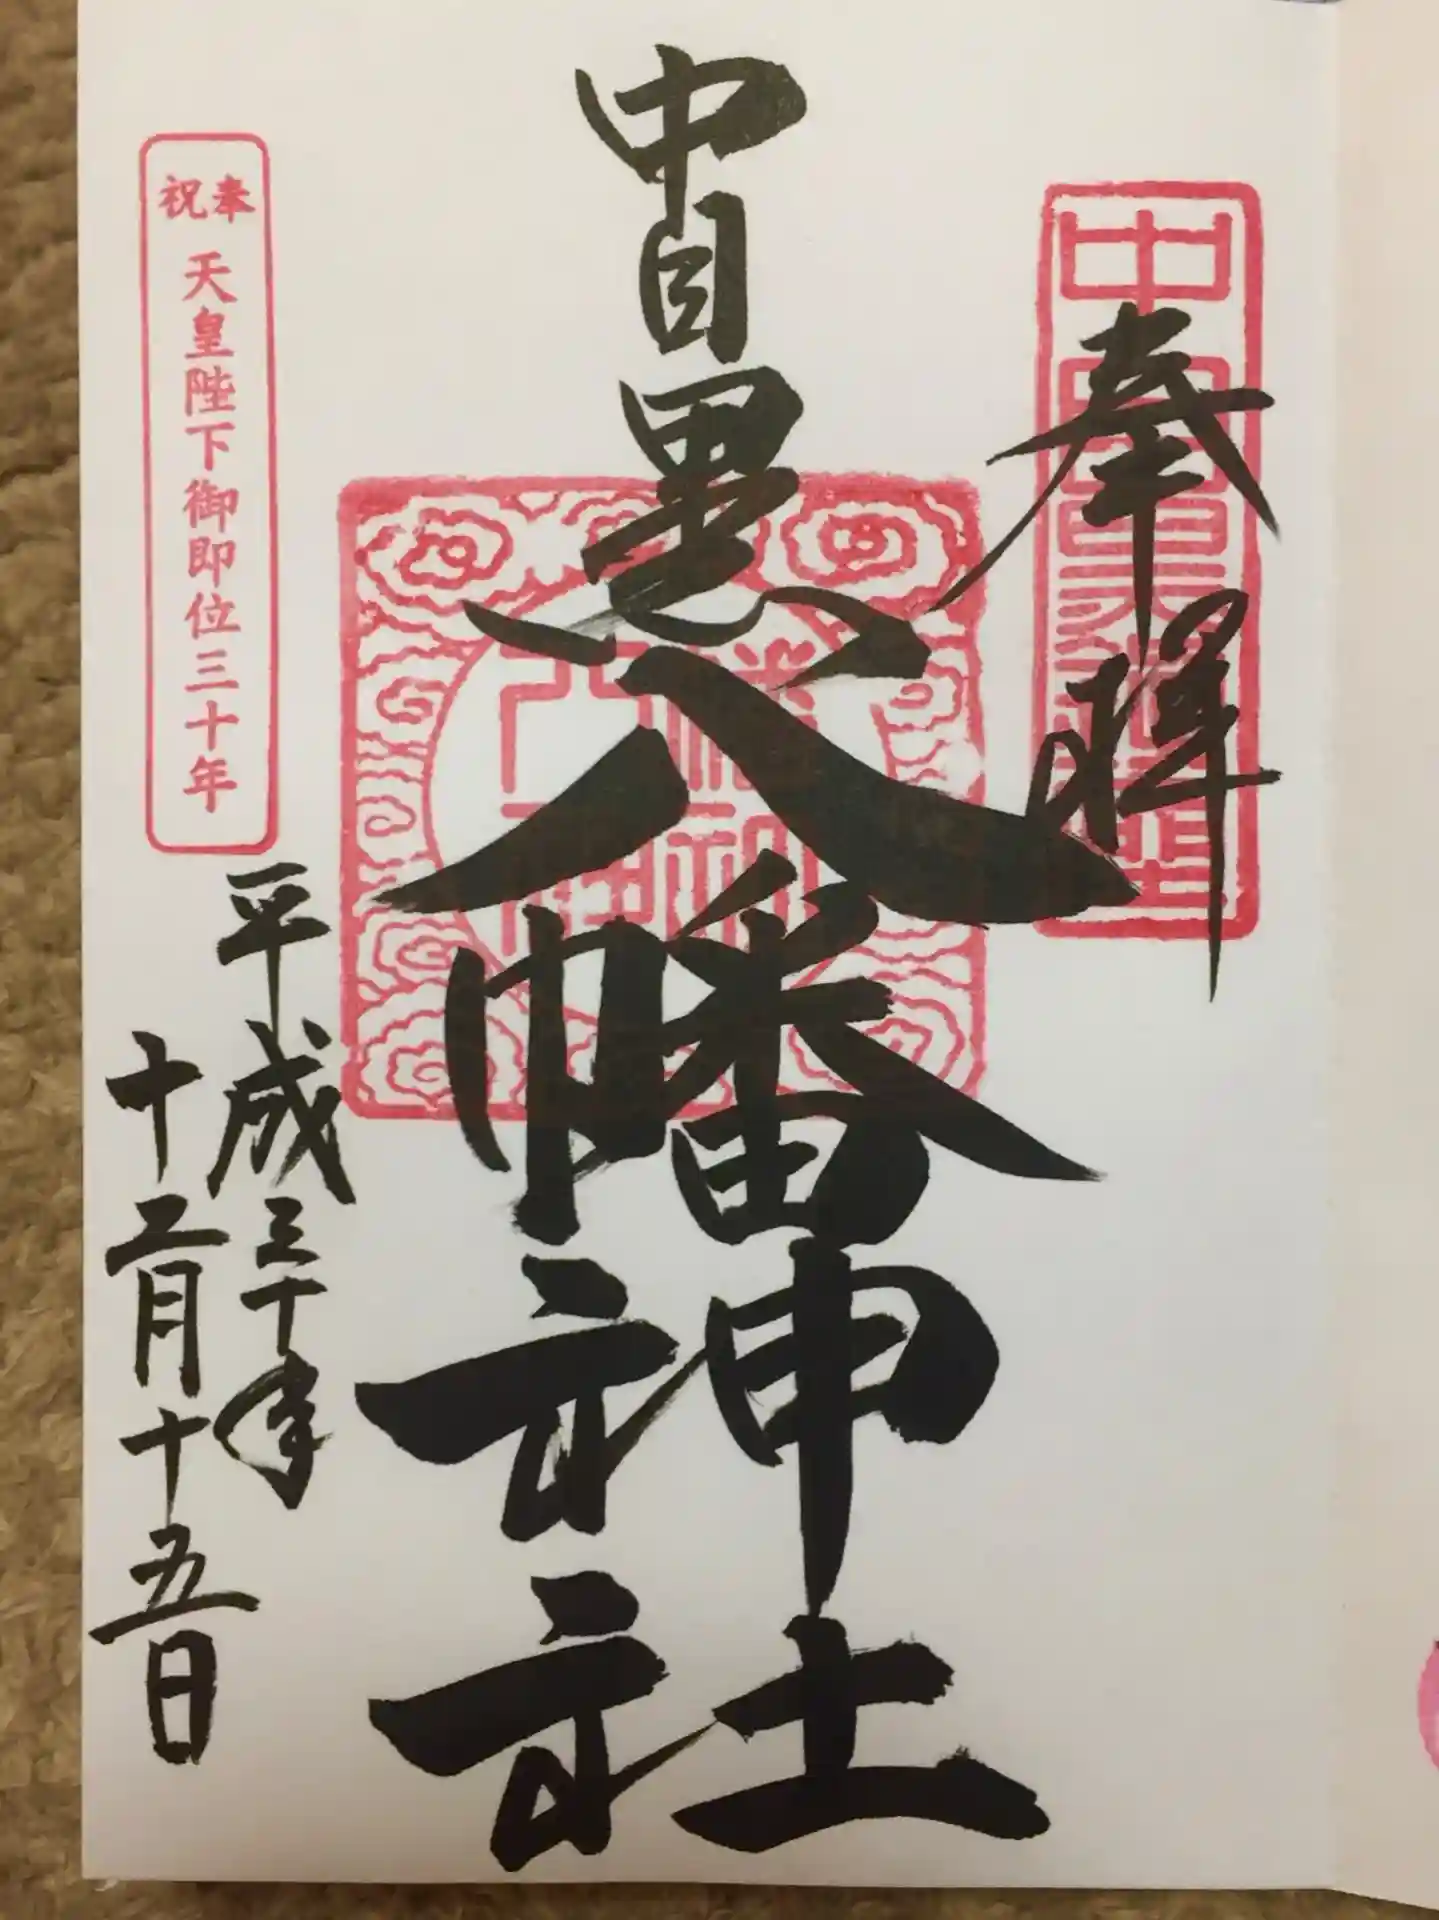 奉拝
中目黒八幡神社
奉祝
天皇陛下御即位三十年
平成三十年
十二月十五日